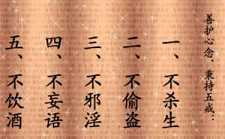 善护心念，秉持五戒：
一、不杀生
二、不偷盗
三、不邪淫
四、不妄语
五、不饮酒